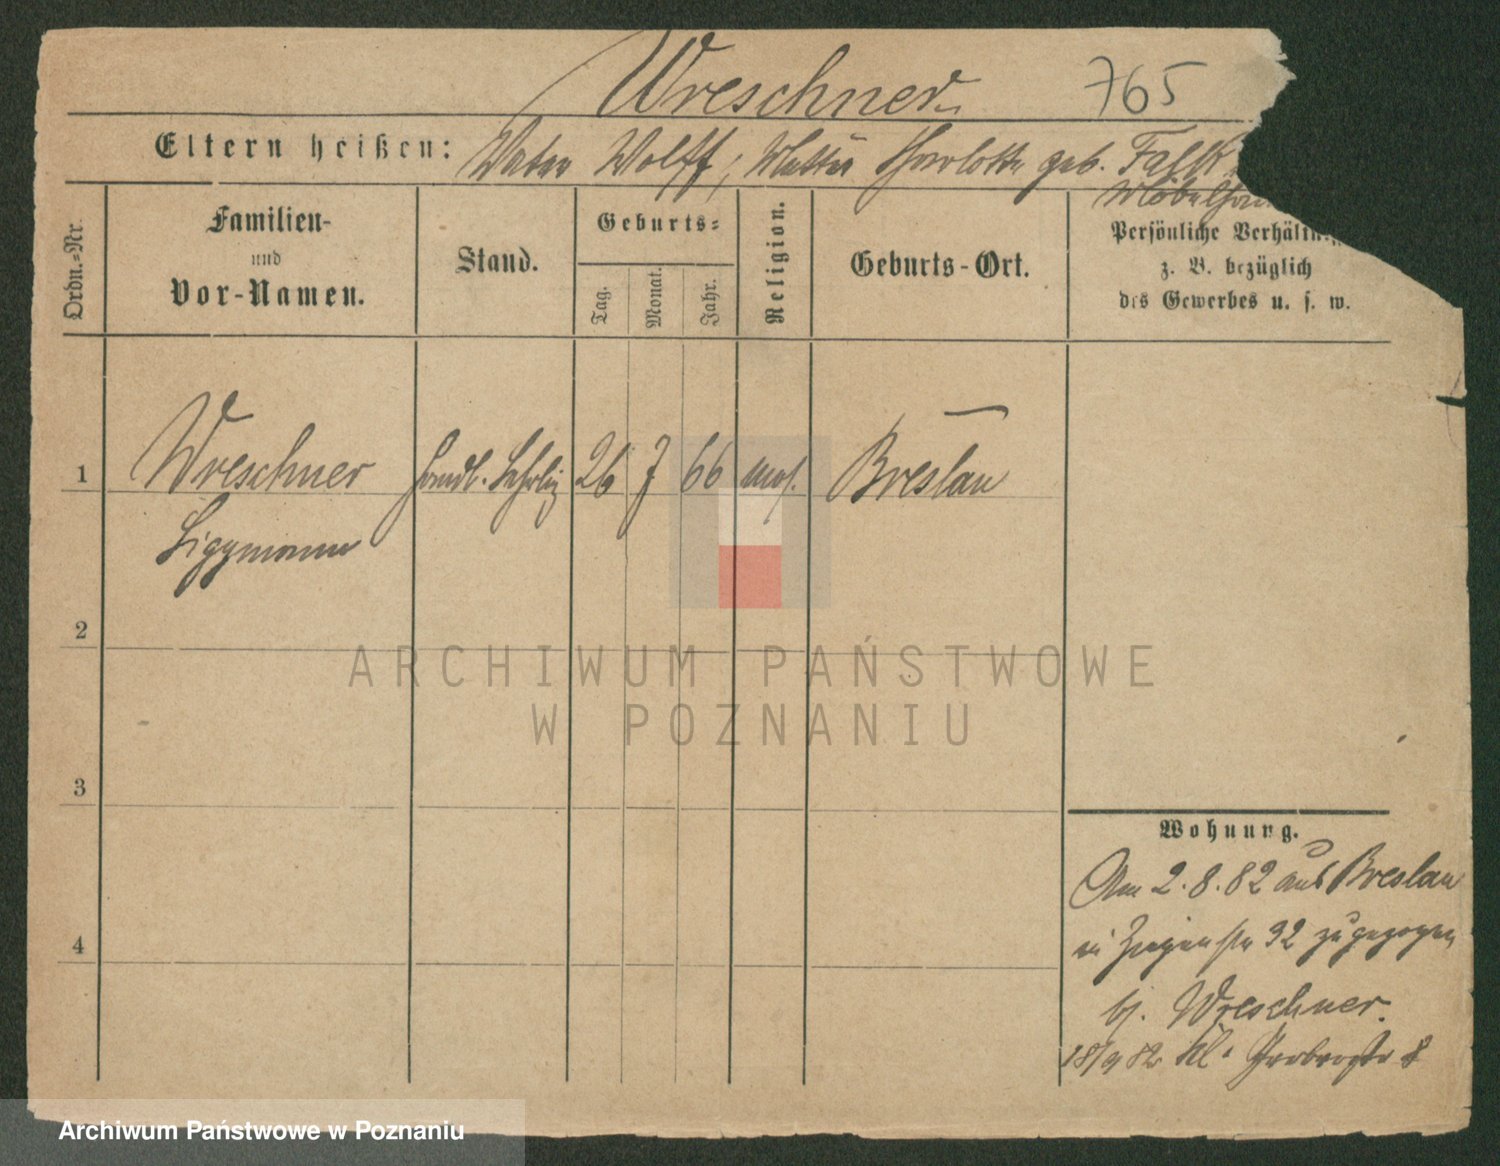 Wreschner
765
Eltern heißen: Vater Wolff, Mutter Charlotte geb. Falk
Ordn.-Nr.
Familien-
und
Vor-Namen.
Stand.
Geburts-
Tag.
Monat.
Jahr.
Religion.
Geburts-Ort.
Persönliche Verhältn
z. B. bezüglich
des Gewerbes u. s. w.
1 Wreschner Handl. Lehrlg 26 7 66 mos. Breslau
2
3
4
Wohnung.
Am 2.8.82 aus Breslau
in Ziegenstr 32 zugezogen
bj. Wreschner.
18/9 82 Kl. Gerberstr 8
ARCHIWUM PAŃSTWOWE
W POZNANIU
Archiwum Państwowe w Poznaniu